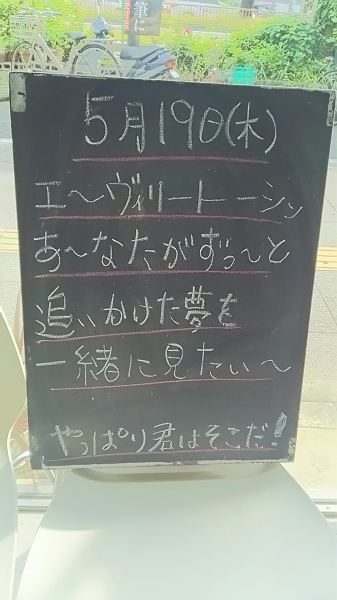 筆に
5月19日(木)
エ〜ヴリートーシン
あ〜なたがずっ〜と
追いかけた夢を
一緒に見たい〜
やっぱり君はそこだ!